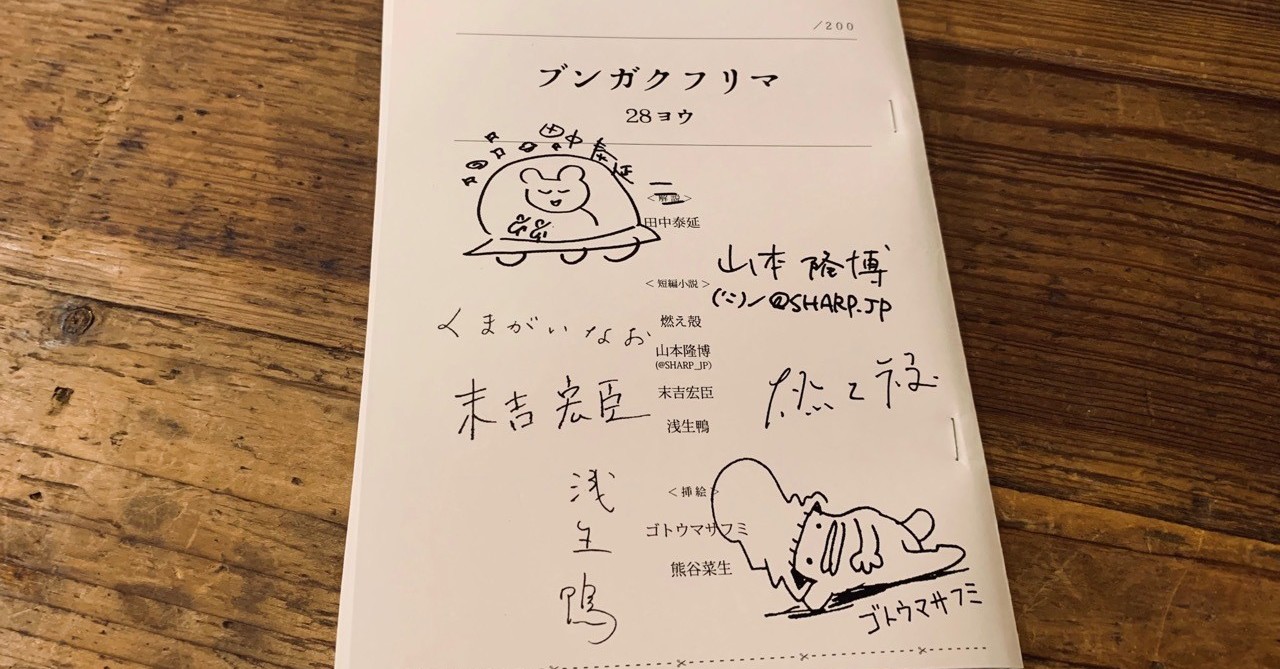 /200
ブンガクフリマ
28ヨウ
田中泰延
<解説>
田中泰延
山本隆博
@SHARP_JP
<短編小説>
くまがいなお
燃え殻
山本隆博
(@SHARP_JP)
末吉宏臣
末吉宏臣
燃え殻
浅生鴨
浅生鴨
<挿絵>
ゴトウマサフミ
熊谷菜生
ゴトウマサフミ